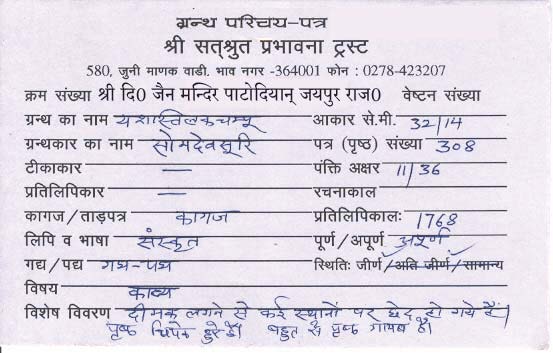 ग्रन्थ परिचय-पत्र
श्री सत्श्रुत प्रभावना ट्रस्ट
580, जुनी माणक वाडी. भाव नगर -364001 फोन : 0278-423207
क्रम संख्या श्री दि0 जैन मन्दिर पाटोदियान् जयपुर राज0 वेष्टन संख्या
ग्रन्थ का नाम यशस्तिलकचम्पू आकार से.मी. 32/14
ग्रन्थकार का नाम सोमदेवसूरि पत्र (पृष्ठ) संख्या 308
टीकाकार — पंक्ति अक्षर 11/36
प्रतिलिपिकार — रचनाकाल
कागज/ताड़पत्र कागज प्रतिलिपिकालः 1768
लिपि व भाषा संस्कृत पूर्ण/अपूर्ण अपूर्ण
गद्य/पद्य गद्य-पद्य स्थितिः जीर्ण/अति जीर्ण/सामान्य
विषय काव्य
विशेष विवरण दीमक लगने से कई स्थानों पर छेद हो गये हैं।
पृष्ठ चिपके हुए हैं। बहुत से पृष्ठ गायब हैं।